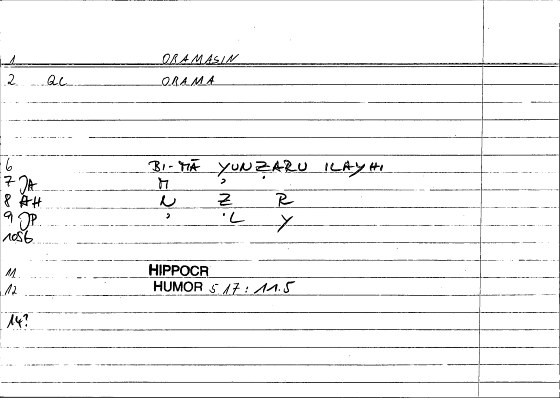 1 ORAMASIN
2 QL ORAMA
6 BI-MĀ YUNẒARU ILAYHI
7 JA M ʾ
8 AH N Ẓ R
9 JP ʾ L Y
10SG
11 HIPPOCR
12 HUMOR 5 17 : 11.5
14?